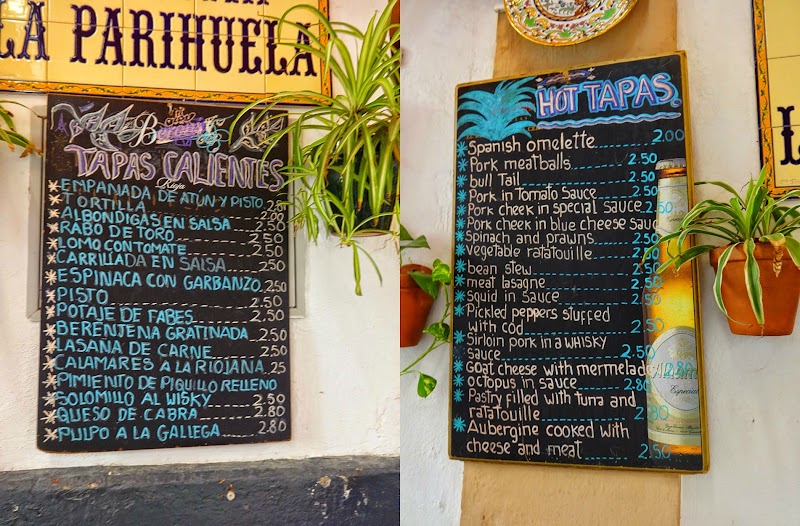 LA PARIHUELA
Barents
TAPAS CALIENTES
Rioja
EMPANADA DE ATUN Y PISTO 2.80
TORTILLA 2.00
ALBONDIGAS EN SALSA 2.50
RABO DE TORO 2.50
LOMO CON TOMATE 2.50
CARRILLADA EN SALSA 2.50
ESPINACA CON GARBANZO 2.50
PISTO 2.50
POTAJE DE FABES 2.50
BERENJENA GRATINADA 2.50
LASANA DE CARNE 2.50
CALAMARES A LA RIOJANA 25
PIMIENTO DE PIQUILLO RELLENO
SOLOMILLO AL WISKY 2.50
QUESO DE CABRA 2.80
PULPO A LA GALLEGA 2.80
HOT TAPAS.
Spanish omelette 2.00
Pork meatballs 2.50
bull Tail 2.50
Pork in Tomato Sauce 2.50
Pork cheek in special sauce 2.50
Pork cheek in blue cheese sauce
Spinach and prawns 2.50
Vegetable ratatouille 2.50
bean stew 2.50
meat lasagne 2.50
squid in sauce 2.50
Pickled peppers stuffed
with cod 2.50
Sirloin pork in a WHISKY
sauce 2.50
Goat cheese with mermelade 2.80
octopus in sauce 2.80
Pastry filled with tuna and
ratatouille 2.80
Aubergine cooked with
cheese and meat 2.50
Especial